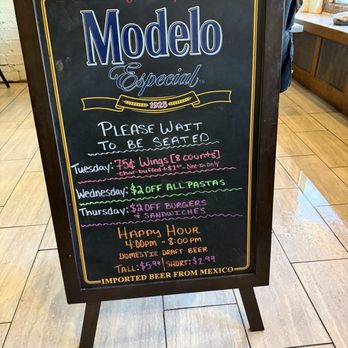 Modelo
Especial
1925
PLEASE WAIT
TO BE SEATED
Tuesday: 75¢ Wings [8 counts]
Wednesday: $2 OFF ALL PASTAS
Thursday: $2 OFF BURGERS
& SANDWICHES
HAPPY HOUR
4:00PM - 8:00PM
DOMESTIC DRAFT BEER
TALL: $5.99 | SHORT: $2.99
IMPORTED BEER FROM MEXICO